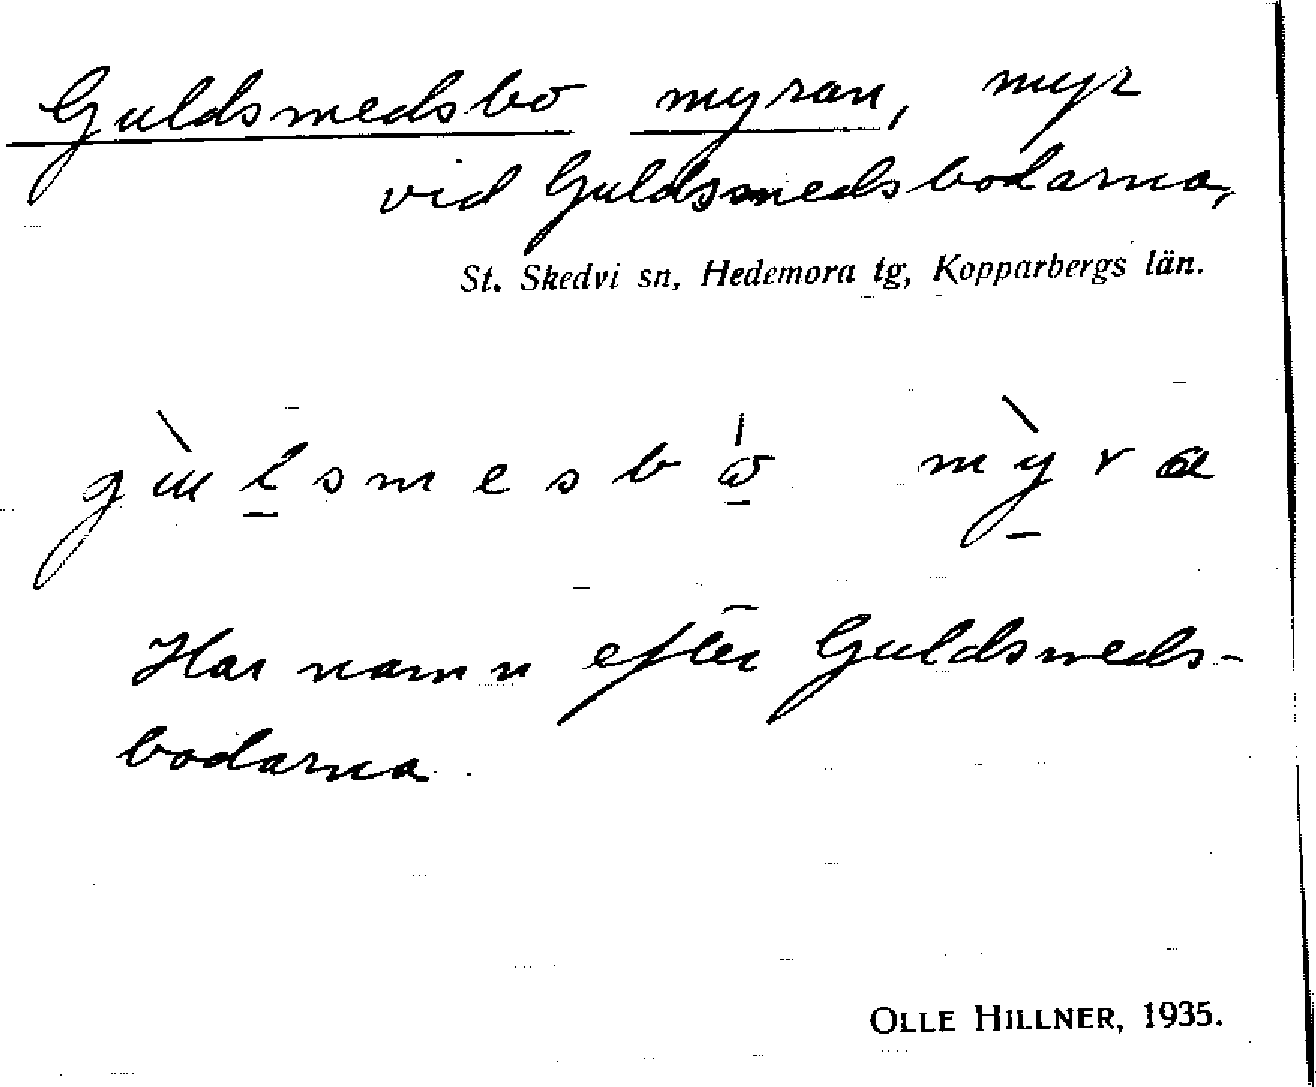 Guldsmedsbo myran, myr
vid Guldsmedsbodarna,
St. Skedvi sn, Hedemora tg, Kopparbergs län.
gùlsmesbó mỳra
Har namn efter Guldsmeds-
bodarna.
OLLE HILLNER, 1935.